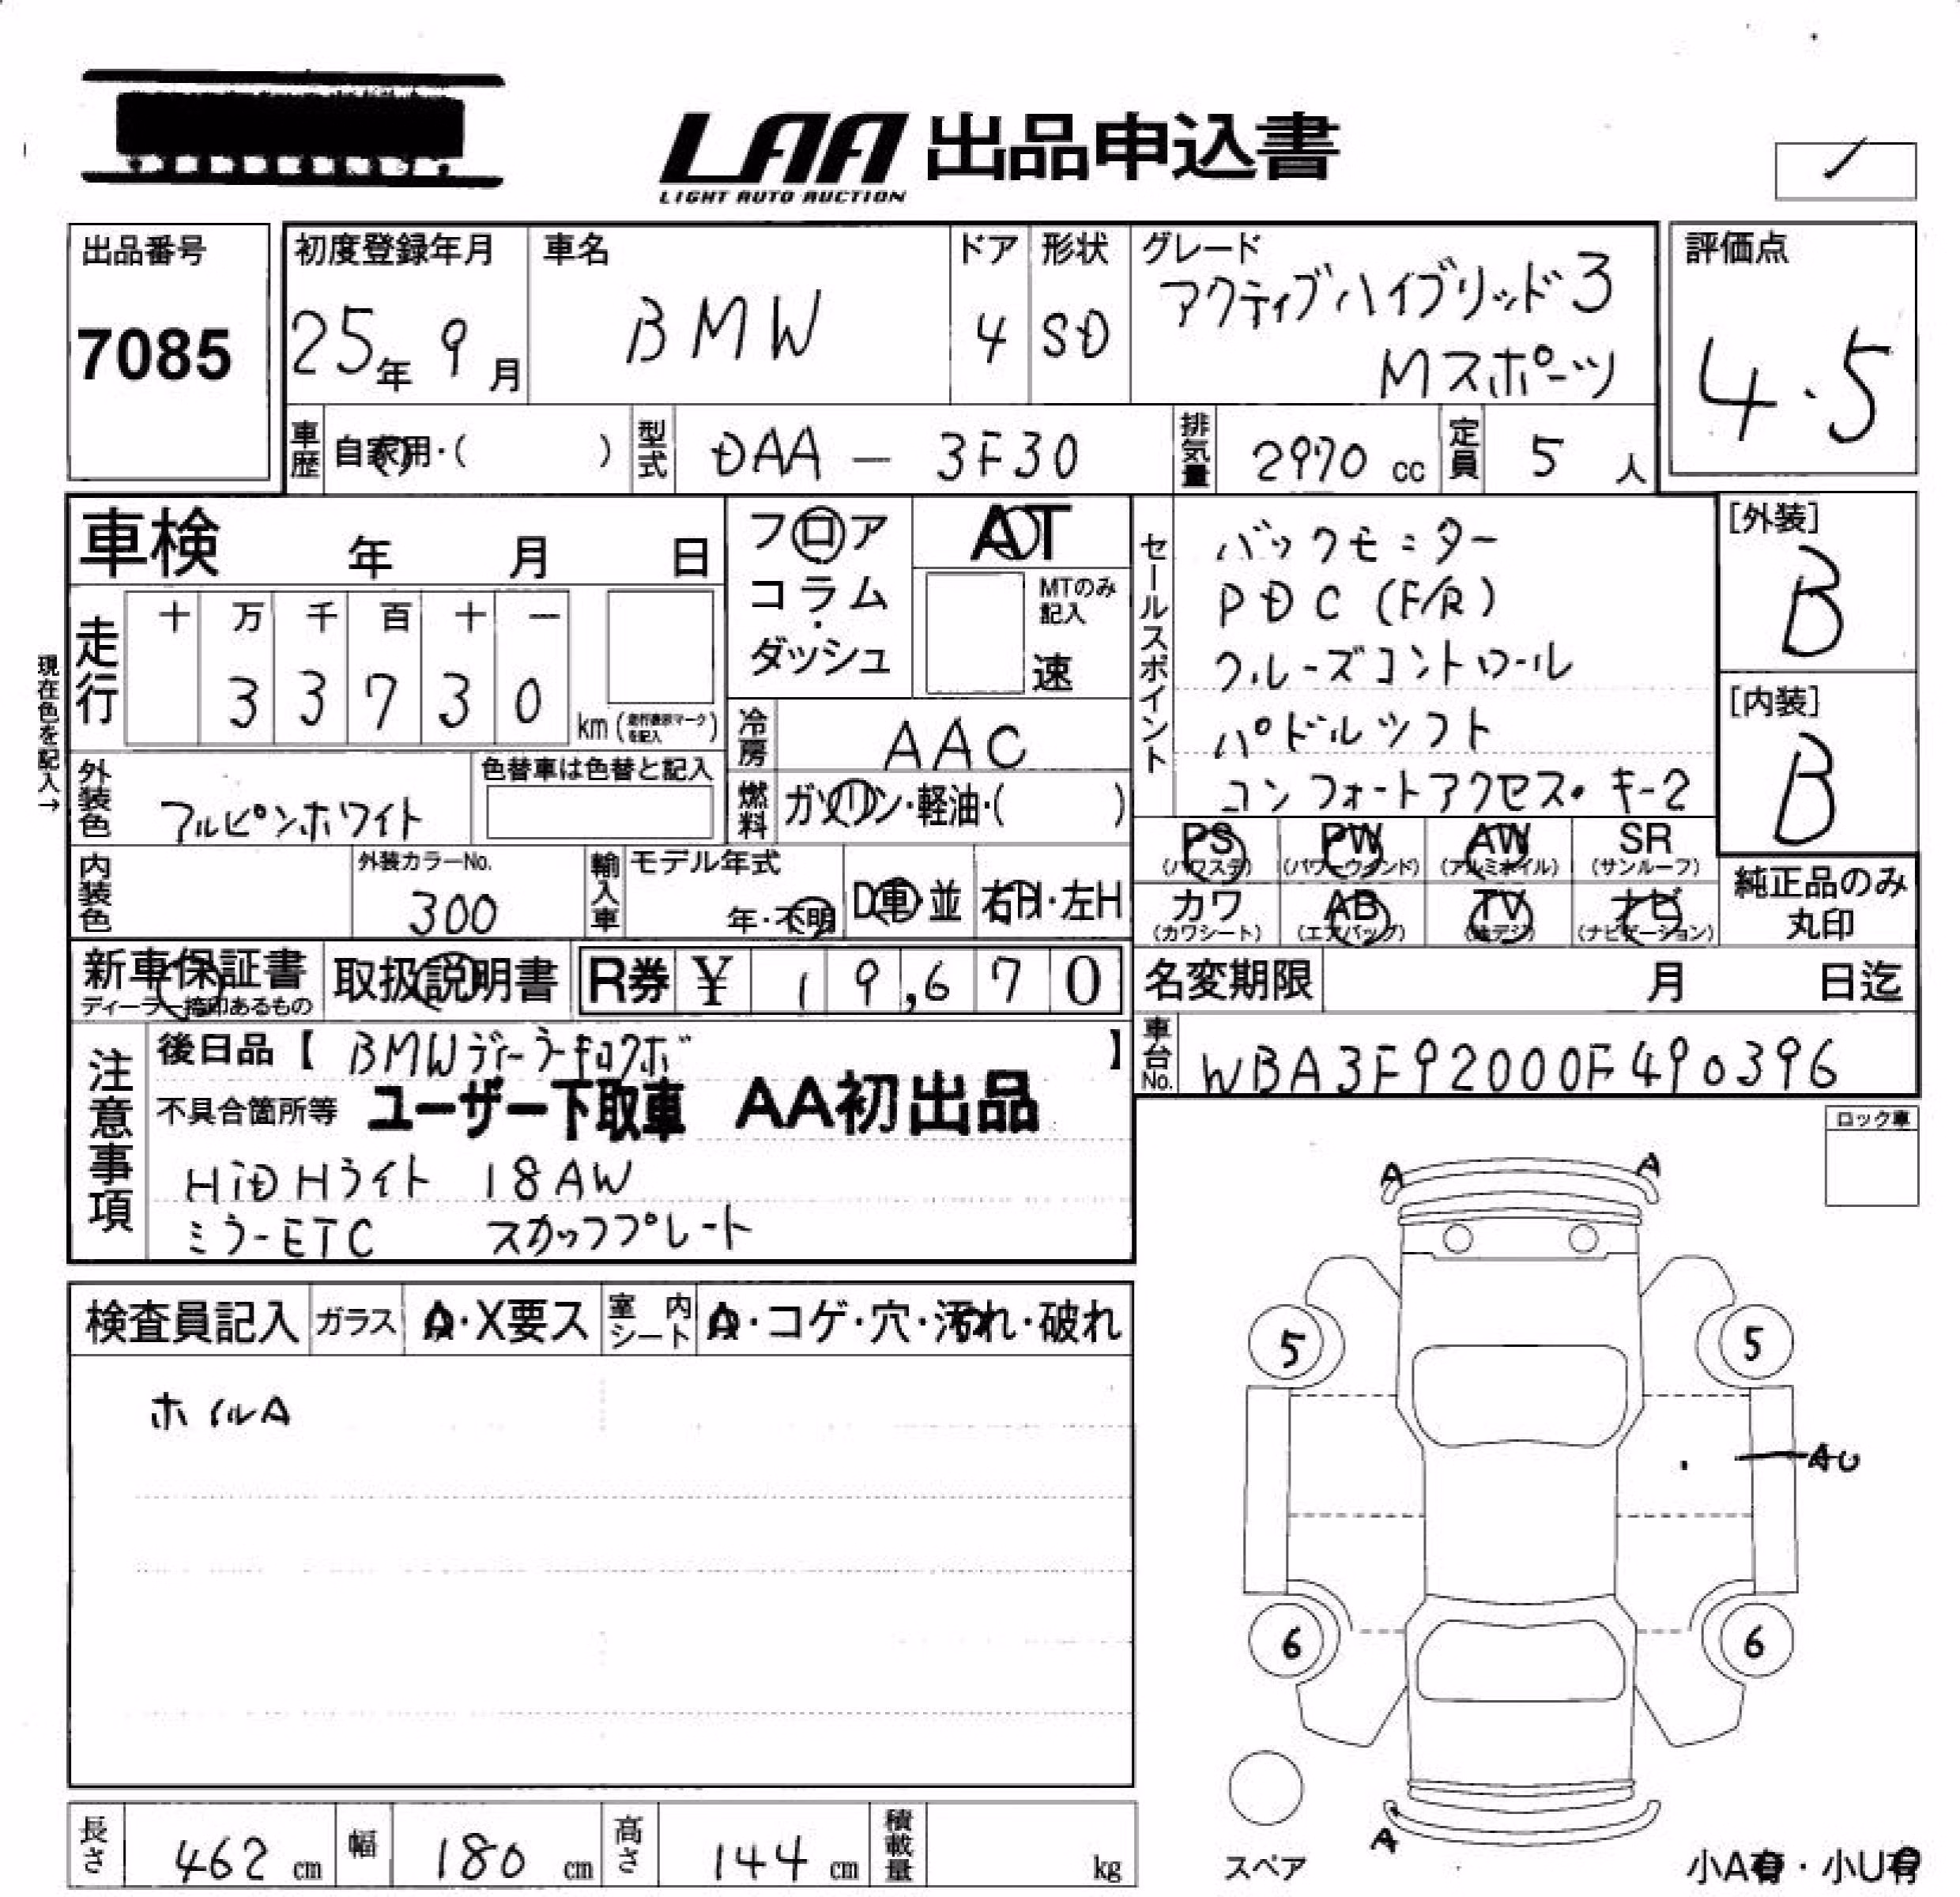 LAA 出品申込書
LIGHT AUTO AUCTION
出品番号
7085
初度登録年月
25年 9月
車名
BMW
ドア
4
形状
SD
グレード
アクティブハイブリッド3
Mスポーツ
評価点
4.5
車歴 自家用・( )
型式 DAA - 3F30
排気量 2970 cc
定員 5 人
車検 年 月 日
フロア
コラム
・
ダッシュ
AT
MTのみ
記入
速
セールスポイント
バックモニター
PDC (F/R)
クルーズコントロール
パドルシフト
コンフォートアクセス・キー2
[外装]
B
[内装]
B
現在色を記入→
走行
十 万 千 百 十 一
3 3 7 3 0
km (走行表示マークを記入)
冷房 AAC
外装色 アルピンホワイト
色替車は色替と記入
燃料 ガソリン・軽油・( )
PS (パワステ)
PW (パワーウインド)
AW (アルミホイル)
SR (サンルーフ)
カワ (カワシート)
AB (エアバッグ)
TV (地デジ)
ナビ (ナビゲーション)
純正品のみ
丸印
内装色
外装カラーNo.
300
輸入車
モデル年式
年・不明
D車・並
右H・左H
新車保証書
ディーラー捺印あるもの
取扱説明書
R券 ¥ 19,670
名変期限 月 日迄
車台No. WBA3F92000F490396
注意事項
後日品【 BMWディーラーキロクボ 】
不具合箇所等 ユーザー下取車 AA初出品
HiD Hライト 18AW
ミラーETC スカッフプレート
ロック車
検査員記入 ガラス A・X要ス 室内シート A・コゲ・穴・汚れ・破れ
ホイルA
A A
5 5
AU
6 6
A
スペア
小A有・小U有
長さ 462 cm
幅 180 cm
高さ 144 cm
積載量 kg